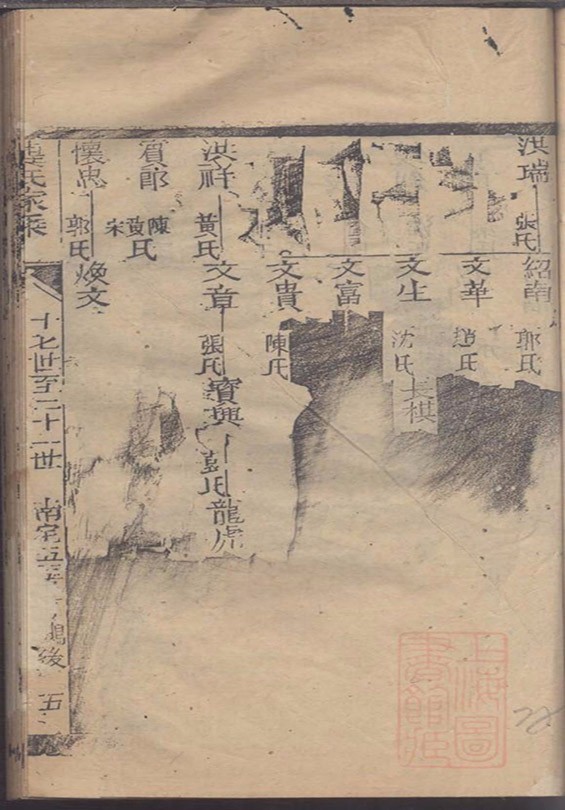 洪瑞 張氏 紹南 郭氏
文華 趙氏
文生 沈氏 長棋
文富
文貴 陳氏
洪祥 黃氏 文章 張氏 寶興 彭氏 龍虎
賓郎 陳黃宋氏
懷忠 郭氏 煥文
氏家乘 十七世至二十一世 南宅五 後 五
上海圖書館藏